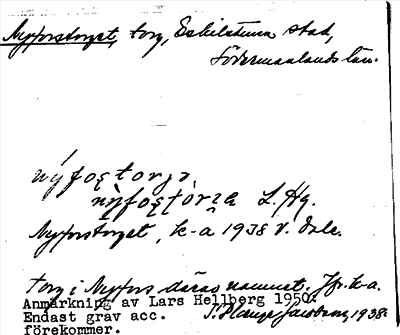 Nyforstorget, torg, Eskilstuna stad,
Södermanlands län.
nýfos̨torjə
L. Hg.
Nyforstorget, k-a 1938 V. Dale.
torg i Nyfors därav namnet. Jfr. k-a.
Anmärkning av Lars Hellberg 1950:
Endast grav acc. 1938.
förekommer.